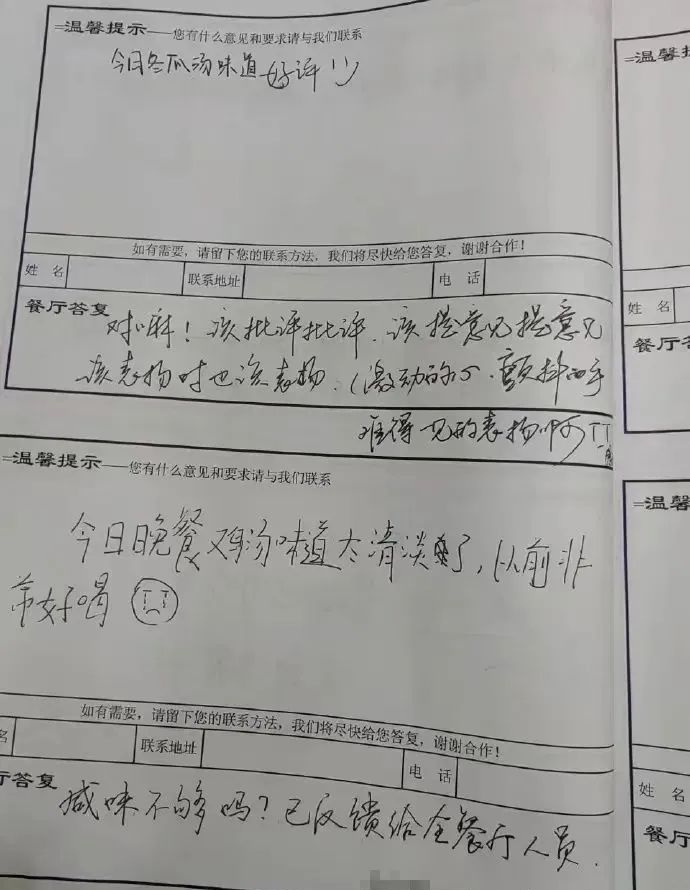 =温馨提示——您有什么意见和要求请与我们联系
今日冬瓜汤味道好评!!
如有需要,请留下您的联系方法,我们将尽快给您答复,谢谢合作!
姓 名 联系地址 电 话
餐厅答复
对嘛!该批评批评.该提意见提意见
该表扬时也该表扬.(激动的心.颤抖的手
难得一见的表扬啊TT
=温馨提示——您有什么意见和要求请与我们联系
今日晚餐鸡汤味道太清淡了,以前非
常好喝
如有需要,请留下您的联系方法,我们将尽快给您答复,谢谢合作!
名 联系地址 电 话
厅答复
咸味不够吗?已反馈给全餐厅人员.
=温馨提
姓 名
餐厅答
=温馨
姓 名
餐厅